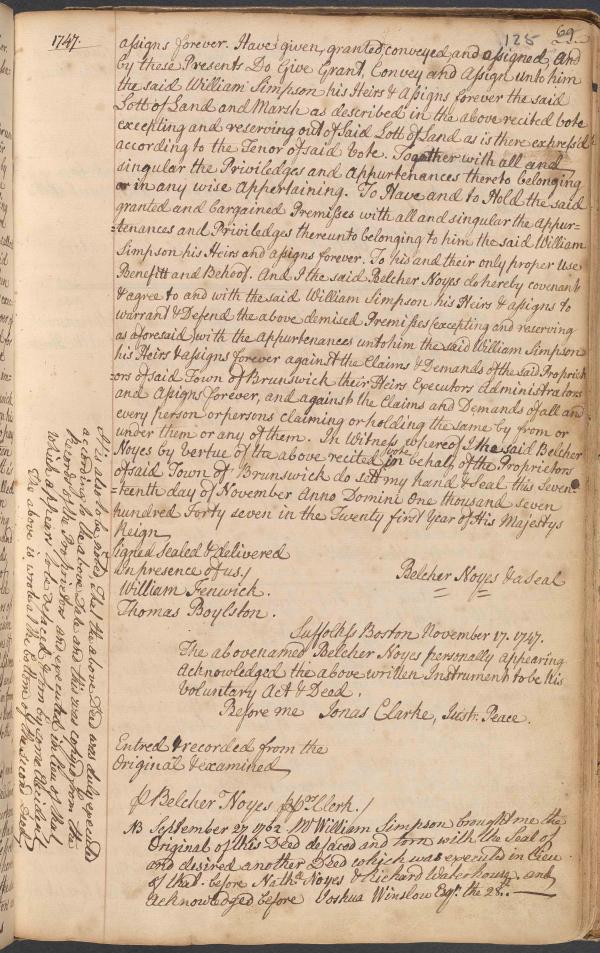 125 69
1747.
assigns forever. Have given, granted, conveyed, and assigned, And
by these Presents Do Give Grant, Convey and Assign unto him
the said William Simpson his Heirs & Assigns forever the said
Lott of Land and Marsh as described in the above recited Vote
excepting and reserving out of said Lott of Land as is there express'd
according to the Tenor of said Vote. Together with all and
singular the Priviledges and Appurtenances thereto belonging
or in any wise Appertaining. To Have and to Hold the said
granted and bargained Premisses with all and singular the Appur-
=tenances and Priviledges thereunto belonging to him the said William
Simpson his Heirs and assigns forever. To his and their only proper Use
Benefitt and Behoof. And I the said Belcher Noyes do hereby covenant
& agree to and with the said William Simpson his Heirs & assigns to
warrant & Defend the above demised Premisses (excepting and reserving
as aforesaid) with the Appurtenances unto him the said William Simpson
his Heirs & assigns forever against the Claims & Demands of the said Propriet
=ors of said Town of Brunswick their Heirs Executors Administrators
and Assigns forever, and against the Claims and Demands of all and
every person or persons claiming or holding the same by from or
under them or any of them. In Witness whereof I the said Belcher
Noyes by vertue of the above recited vote in behalf of the Proprietors
of said Town of Brunswick do sett my hand & Seal this Seven-
=teenth day of November Anno Domini One thousand seven
hundred Forty seven in the Twenty first Year of His Majestys
Reign
Signed Sealed & delivered
In presence of us,
William Fenwick.
Thomas Boylston.
Belcher Noyes & a Seal
Suffolk ss Boston November 17. 1747.
The abovenamed Belcher Noyes personally appearing
Acknowledged the above written Instrument to be his
Voluntary Act & Deed.
Before me Jonas Clarke, Just: Peace.
Entred & recorded from the
Original & examined
Belcher Noyes Clerk.
NB September 27 1762 Mr William Simpson brought me the
Original of this Deed defaced and torn with the Seal of
and desired another Deed which was executed in lieu
of that. before Nath.a Noyes & Richard Waterhouse. and
Acknowledged before Joshua Winslow Esqr. the 28th.
It is also to be noted, That the above Deed was duly executed
according to the above Date and this was copied from the
Record of the Proprietors and executed in lieu of that
which appears to be defaced & torn by some Accident
The above is wrote at the bottom of the second Deed